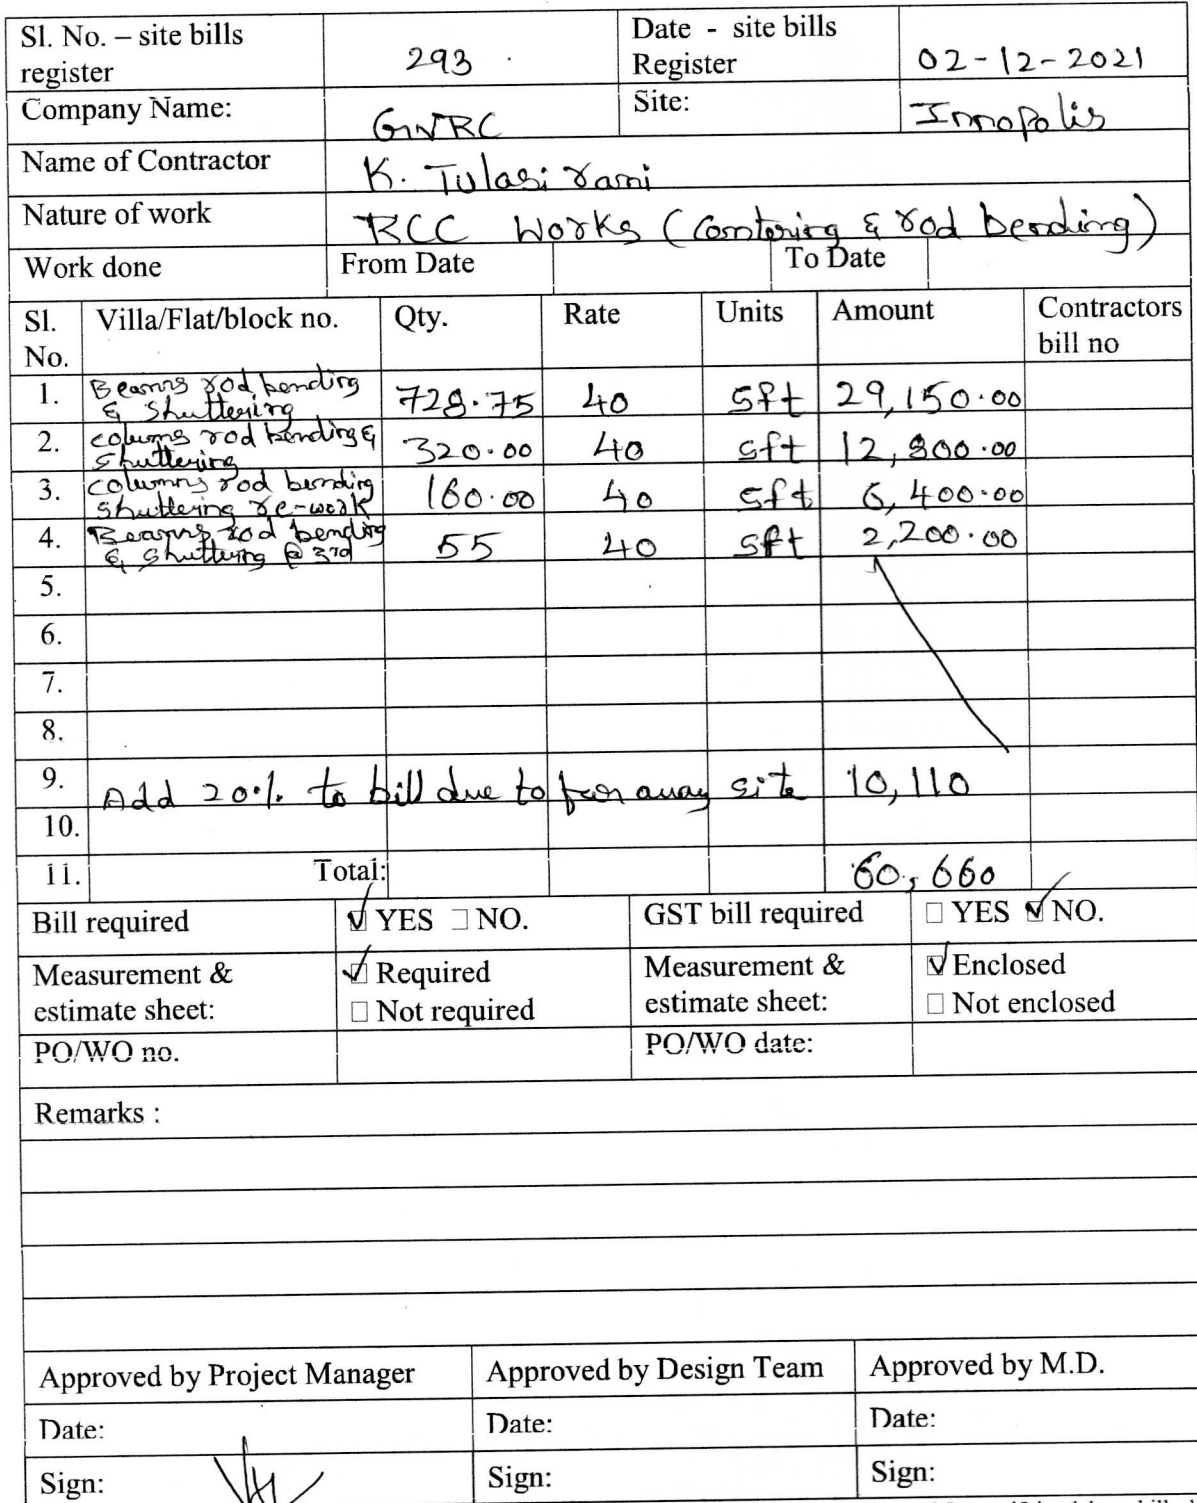 Sl. No. – site bills register 293 Date - site bills Register 02-12-2021
Company Name: GNRC Site: Innopolis
Name of Contractor K. Tulasi rami
Nature of work RCC Works (Centering & rod bending)
Work done From Date To Date
Sl. No. Villa/Flat/block no. Qty. Rate Units Amount Contractors bill no
1. Beams rod bending & Shuttering 728.75 40 sft 29,150.00
2. columns rod bending & shuttering 320.00 40 sft 12,800.00
3. columns rod bending shuttering re-work 160.00 40 sft 6,400.00
4. Beams rod bending & shuttering @ 3rd 55 40 sft 2,200.00
5.
6.
7.
8.
9. Add 20% to bill due to far away site 10,110
10.
11. Total: 60,660
Bill required YES NO. GST bill required YES NO.
Measurement & estimate sheet: Required Not required Measurement & estimate sheet: Enclosed Not enclosed
PO/WO no. PO/WO date:
Remarks :
Approved by Project Manager Approved by Design Team Approved by M.D.
Date: Date: Date:
Sign: Sign: Sign: